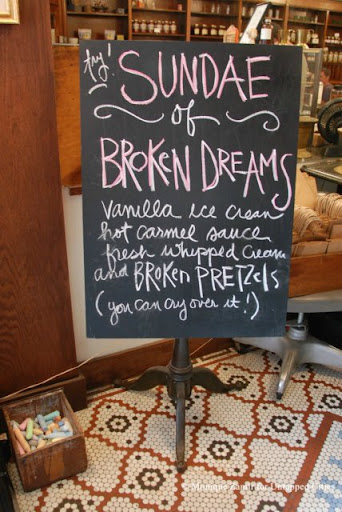 try!
SUNDAE
of
BROKEN DREAMS
vanilla ice cream
hot carmel sauce
fresh whipped cream
and BROKEN PRETZELS
(you can cry over it!)